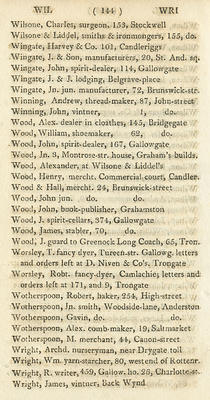 WIL ( 144 ) WRI
Wilsone, Charles, surgeon, 153, Stockwell
Wilsone & Liddel, smiths & ironmongers, 155, do.
Wingate, Harvey & Co. 101, Candleriggs
Wingate, J. & Son, manufacturers, 20, St. And. sq.
Wingate, John, spirit-dealer, 114, Gallowgate
Wingate, J. & J. lodging, Belgrave-place
Wingate, Jn. jun. manufacturer, 72, Brunswick-str.
Winning, Andrew, thread-maker, 87, John-street
Winning, John, vintner, do.
Wood, Alex. dealer in cloathes, 145, Bridgegate
Wood, William, shoemaker, 62, do.
Wood, John, spirit-dealer, 167, Gallowgate
Wood, Jn. 8, Montrose-str. house, Graham's builds.
Wood, Alexander, at Wilsone & Liddell's
Wood, Henry, mercht. Commercial court, Candler.
Wood & Hall, mercht. 24, Brunswick-street
Wood, John jun. do. do.
Wood, John, book-publisher, Grahamston
Wood, J. spirit-cellars, 374, Gallowgate
Wood, James, stabler, 70, do.
Wood, J. guard to Greenock Long Coach, 65, Tron.
Worsley, T. fancy dyer, Tureen.str. Gallowg. letters
and orders left at D. Niven & Co's, Trongate
Worsley, Robt. fancy-dyer, Camlachie, letters and
orders left at 171, and 9, Trongate
Wotherspoon, Robert, baker, 254, High-street
Wotherspoon, Jn. smith, Woodside-lane, Anderston
Wotherspoon, Gavin, do. do.
Wotherspoon, Alex. comb-maker, 19, Saltmarket
Wotherspoon, M. merchant, 44, Canon-street
Wright, Archd. nurseryman, near Drygate toll
Wright, Wm. yarn-starcher, 80, westend of Rottenr.
Wright, R. writer, 459, Gallow. ho. 28, Charlotte-st.
Wright, James, vintner, Back Wynd